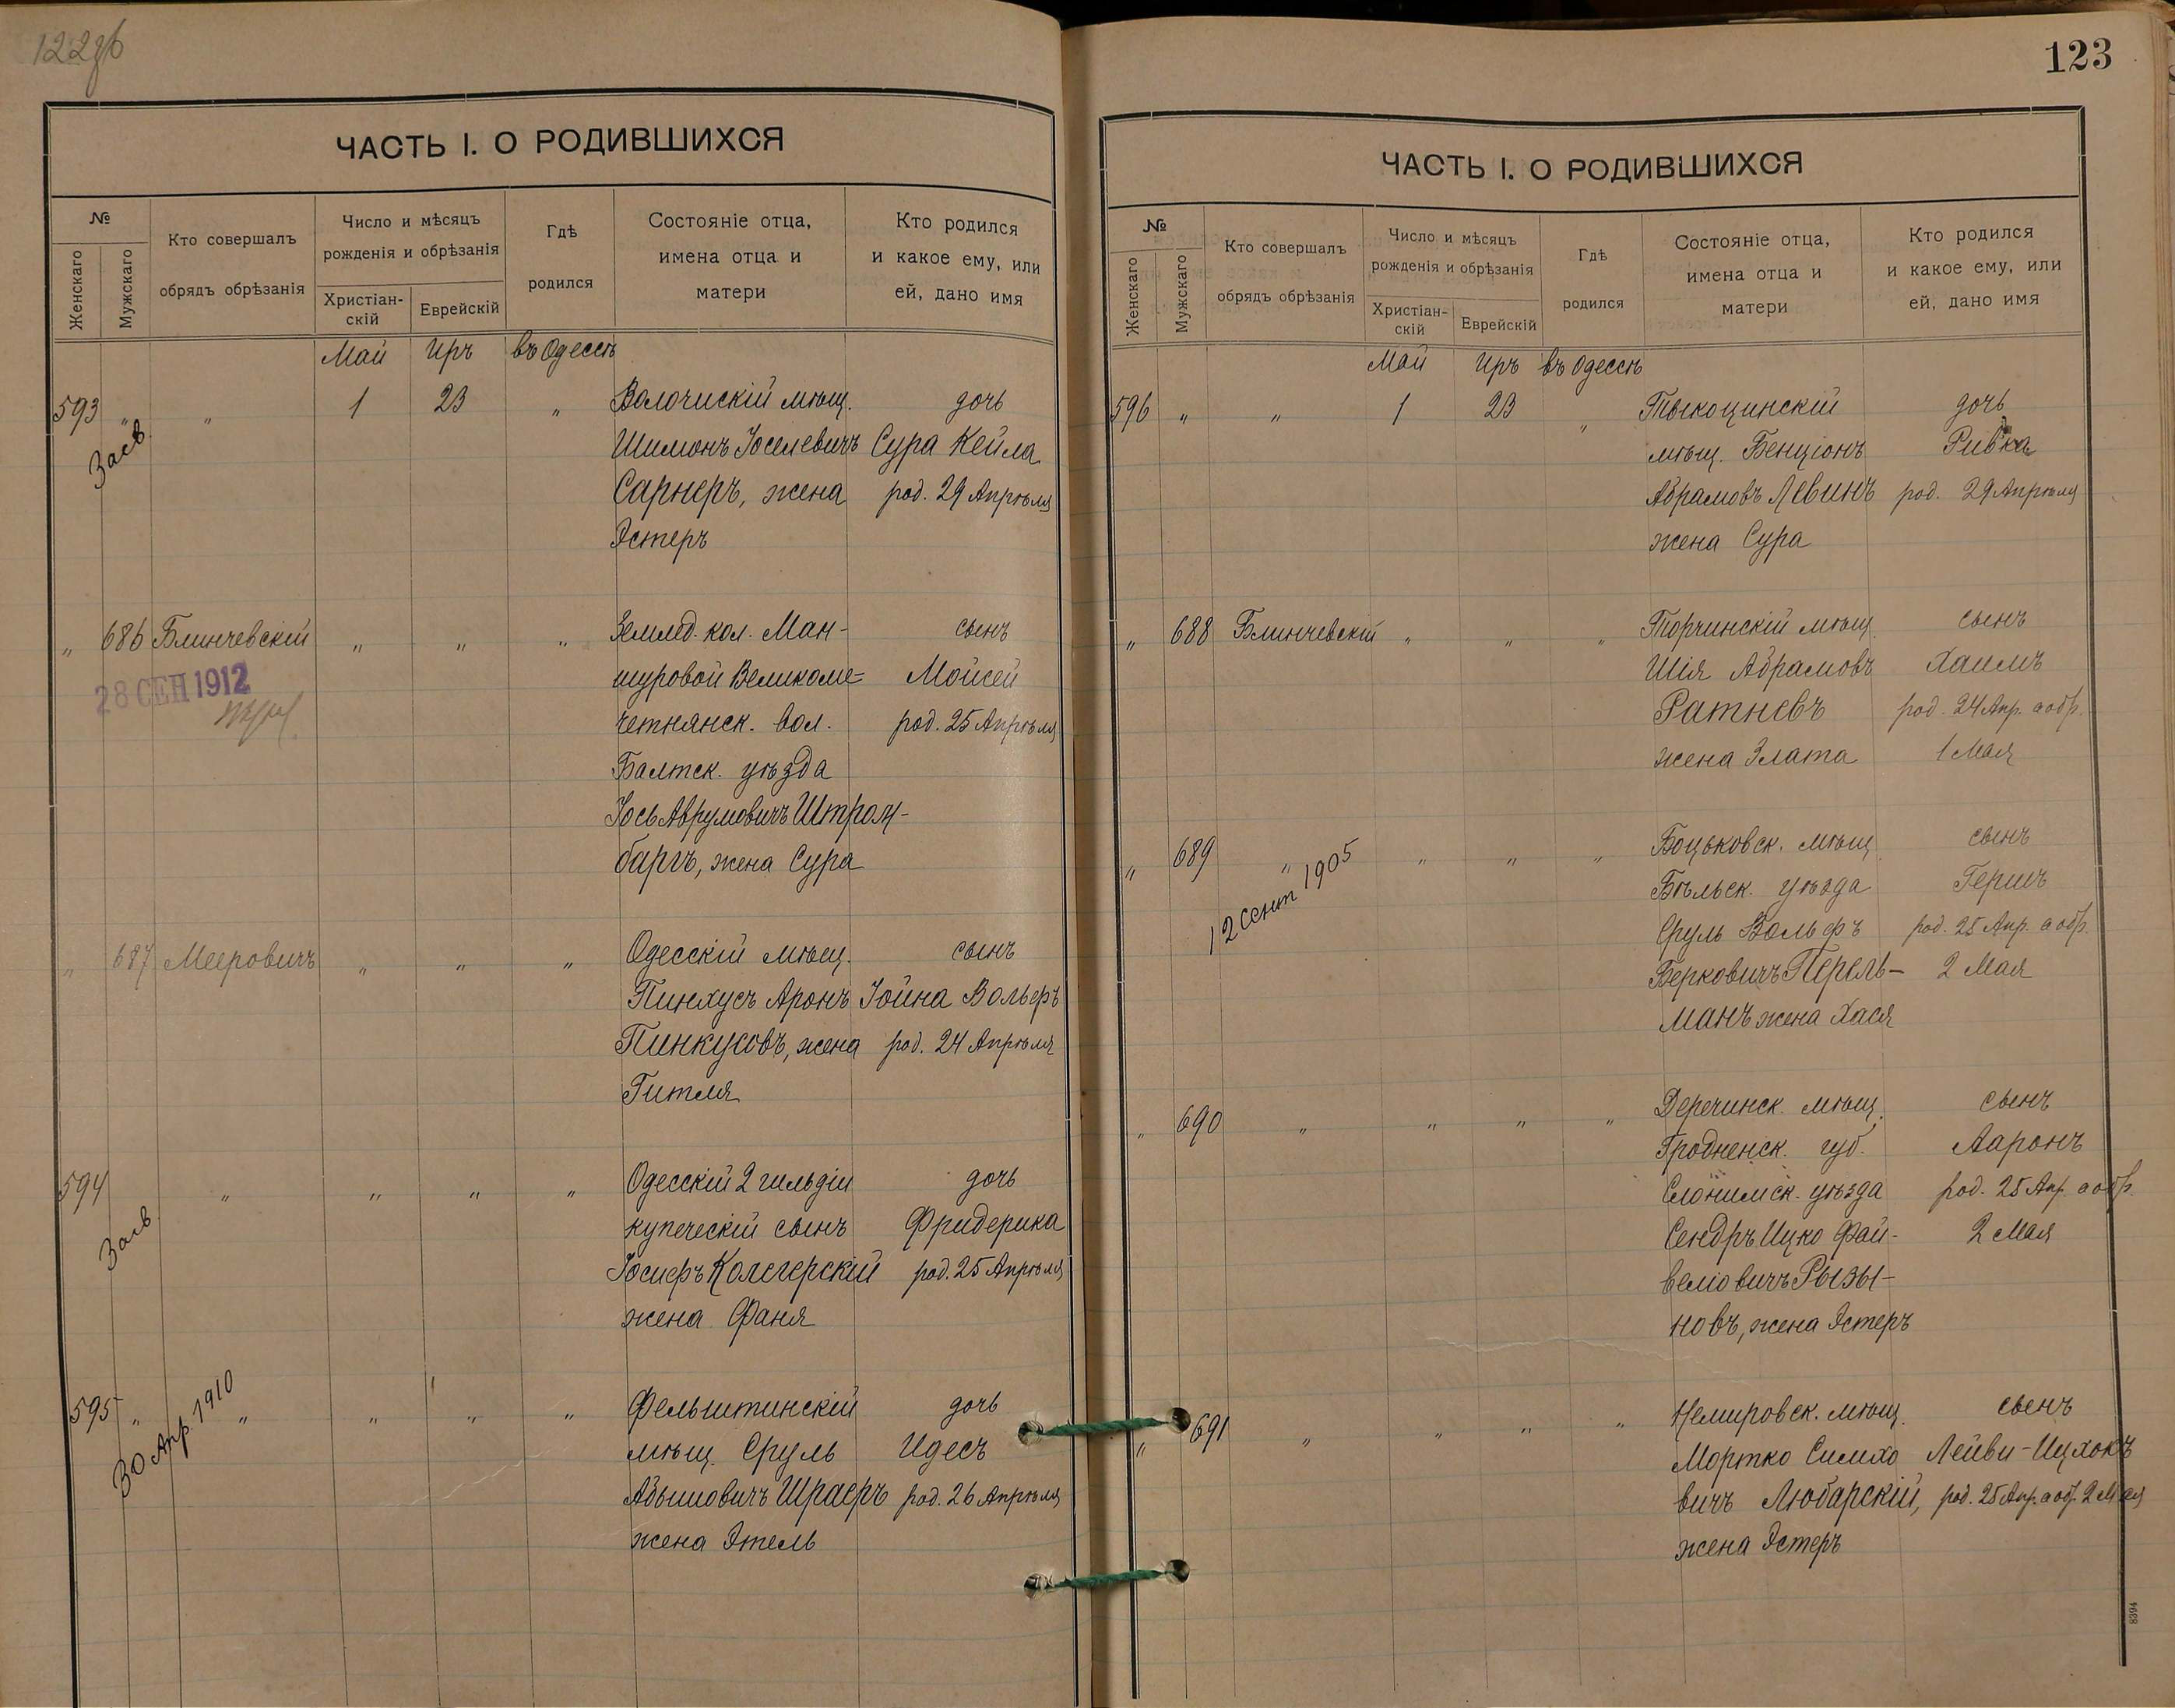 122об
ЧАСТЬ I. О РОДИВШИХСЯ
№
Женскаго
Мужскаго
Кто совершалъ
обрядъ обрѣзанія
Число и мѣсяцъ
рожденія и обрѣзанія
Христіан-
скій
Еврейскій
Гдѣ
родился
Состояніе отца,
имена отца и
матери
Кто родился
и какое ему, или
ей, дано имя
Май Иръ въ Одессѣ
593 " " 1 23 " Волочискій мѣщ. дочь
Засв. Шимонъ Іоселевичъ Сура Кейла
Сарнеръ, жена род. 29 Апрѣля
Эстеръ
" 686 Блинчевскій " " " Землед. кол. Ман- сынъ
28 СЕН 1912 шуровой Великоме= Мойсей
четнянск. вол. род. 25 Апрѣля
Балтск. уѣзда
Іось Аврумовичъ Штром-
баргъ, жена Сура
" 687 Мееровичъ " " " Одесскій мѣщ. сынъ
Пинхусъ Аронъ Іойна Вольфъ
Пинкусовъ, жена род. 24 Апрѣля
Гитля
594 " " " " Одесскій 2 гильдіи дочь
Засв купеческій сынъ Фридерика
Іосифъ Колегерскій род. 25 Апрѣля
жена Фаня
595 " " " " " Фельштинскій дочь
30 Апр. 1910 мѣщ. Сруль Идесъ
Абышовичъ Шраеръ род. 26 Апрѣля
жена Этель
123
ЧАСТЬ I. О РОДИВШИХСЯ
№
Женскаго
Мужскаго
Кто совершалъ
обрядъ обрѣзанія
Число и мѣсяцъ
рожденія и обрѣзанія
Христіан-
скій
Еврейскій
Гдѣ
родился
Состояніе отца,
имена отца и
матери
Кто родился
и какое ему, или
ей, дано имя
Май Иръ въ Одессѣ
596 " " 1 23 " Тыкоцинскій дочь
мѣщ. Бенціонъ Ривка
Абрамовъ Левинъ род. 29 Апрѣля
жена Сура
" 688 Блинчевскій " " " Торчинскій мѣщ. сынъ
Шія Абрамовъ Хаимъ
Ратневъ род. 24 Апр. а обр.
жена Злата 1 Мая
" 689 " " " " Боцьковск. мѣщ. сынъ
12 Сент 1905 Бѣльск. уѣзда Гершъ
Сруль Вольфъ род. 25 Апр. а обр.
Берковичъ Перель- 2 Мая
манъ жена Хася
" 690 " " " " Деречинск. мѣщ. сынъ
Гродненск. губ. Ааронъ
Слонимск. уѣзда род. 25 Апр. а обр.
Сендръ Ицко Фай- 2 Мая
веліовичъ Рызы-
новъ, жена Эстеръ
" 691 " " " " Немировск. мѣщ. сынъ
Мортко Симхо Лейви-Ицхокъ
вичъ Любарскій, род. 25 Апр. а обр. 2 Мая
жена Эстеръ
8394